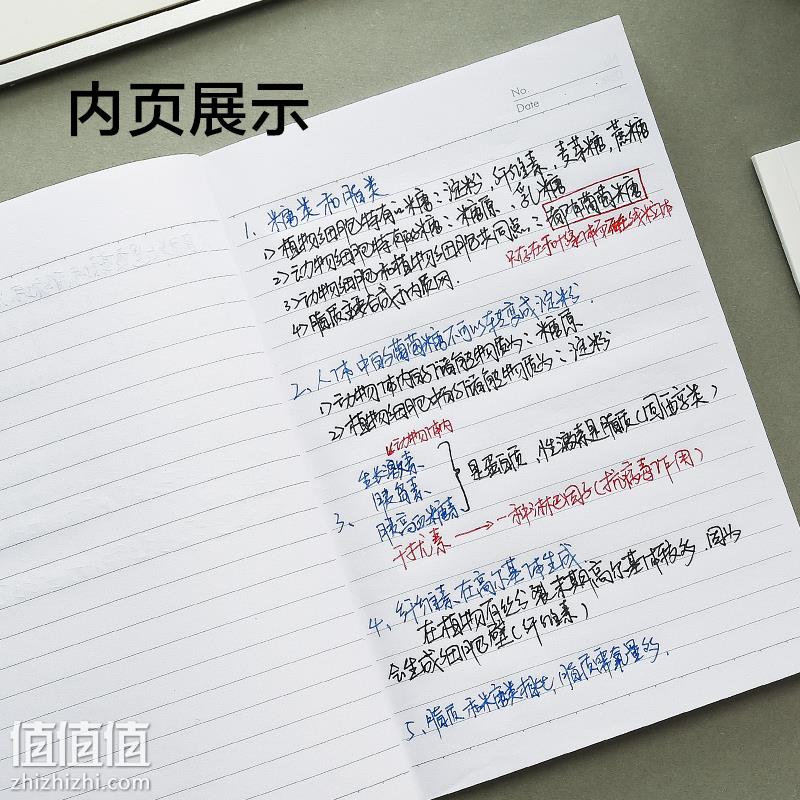 内页展示
No.
Date
1、糖类和脂类
1) 植物细胞特有的糖：淀粉，纤维素，麦芽糖，蔗糖
2) 动物细胞特有的糖：糖原、乳糖
3) 动物细胞和植物细胞共同点：葡萄糖
只存在于叶绿体而不在线粒体
4) 脂质主要合成于内质网.
2、人体中的葡萄糖不可以转变成淀粉.
1) 动物体内的储能物质为：糖原
2) 植物细胞中的储能物质为：淀粉
动物体内
3、
生长激素
胰岛素
胰高血糖素
是蛋白质，性激素是脂质（固醇类）
干扰素→一种淋巴因子（抗病毒作用）
4、纤维素在高尔基体生成
在植物有丝分裂末期高尔基体较多，因为
会生成细胞壁（纤维素）
5、脂质和糖类相比，脂质需氧量多.
值值值
zhizhizhi.com